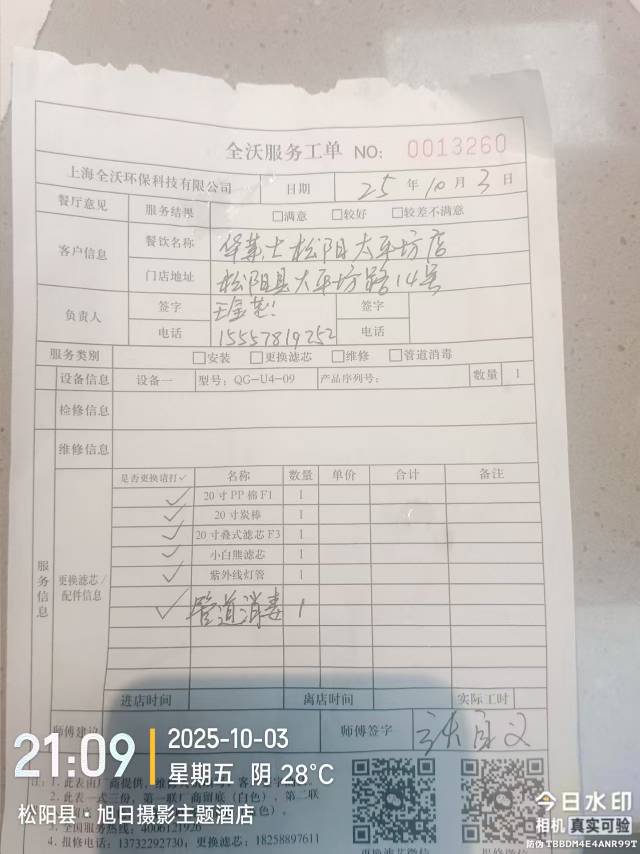 全沃服务工单 NO: 0013260
上海全沃环保科技有限公司 日期 25 年 10 月 3 日
餐厅意见 服务结果 □满意 □较好 □较差不满意
客户信息 餐饮名称 华莱士松阳太平坊店
门店地址 松阳县太平坊路14号
负责人 签字 签字
电话 15557819252 电话
服务类别 □安装 □更换滤芯 □维修 □管道消毒
设备信息 设备一 型号: QG-U4-09 产品序列号: 数量 1
检修信息
维修信息
服务信息
更换滤芯/配件信息
是否更换请打✓ 名称 数量 单价 合计 备注
✓ 20寸PP棉F1 1
✓ 20寸炭棒 1
✓ 20寸叠式滤芯F3 1
✓ 小白熊滤芯 1
✓ 紫外线灯管 1
✓ 管道消毒 1
进店时间 离店时间 实际工时
师傅建议 师傅签字
注: 1. 此表由厂商提供,
2. 此表一式三份, 第一联厂商留底(白色), 第二联
3. 全国服务热线: 4006121926
4. 报修电话: 13732292730; 更换滤芯: 18258897611
21:09
2025-10-03
星期五 阴 28°C
松阳县·旭日摄影主题酒店
今日水印
相机 真实可验
防伪 TBBDM4E4ANR99T